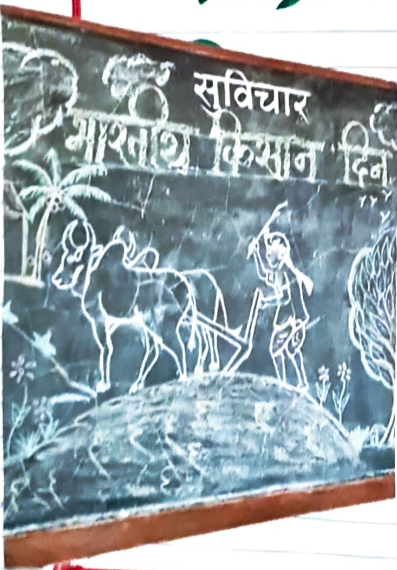 सुविचार
भारतीय किसान दिन